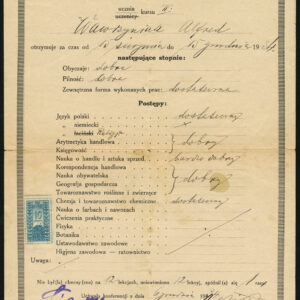 ucznia kursu II.
uczenicy
Wawrzyniak Alfred
otrzymuje za czas od 15 sierpnia do 15 grudnia 19
następujące stopnie:
Obyczaje: dobre
Pilność: dobre
Zewnętrzna forma wykonanych prac: dostateczna
Postępy:
Język polski dostateczny
„ niemiecki
„ łaciński
Arytmetyka handlowa dobry
Księgowość
Nauka o handlu i sztuka sprzed. bardzo dobry
Korespondencja handlowa
Nauka obywatelska dobry
Geografja gospodarcza
Towaroznawstwo roślinne i zwierzęce
Chemja i towaroznawstwo chemiczne dostateczny
Nauka o farbach i nawozach
Ćwiczenia praktyczne
Fizyka
Botanika
Ustawodawstwo zawodowe
Higjena zawodowa — ratownictwo
Uwaga:
Nie był(a) obecny(na) na 12 lekcjach, usprawiedliwiono 12 lekcyj, spóźnił(a) się 1 razy
Uchwała konferencji z dnia grudnia